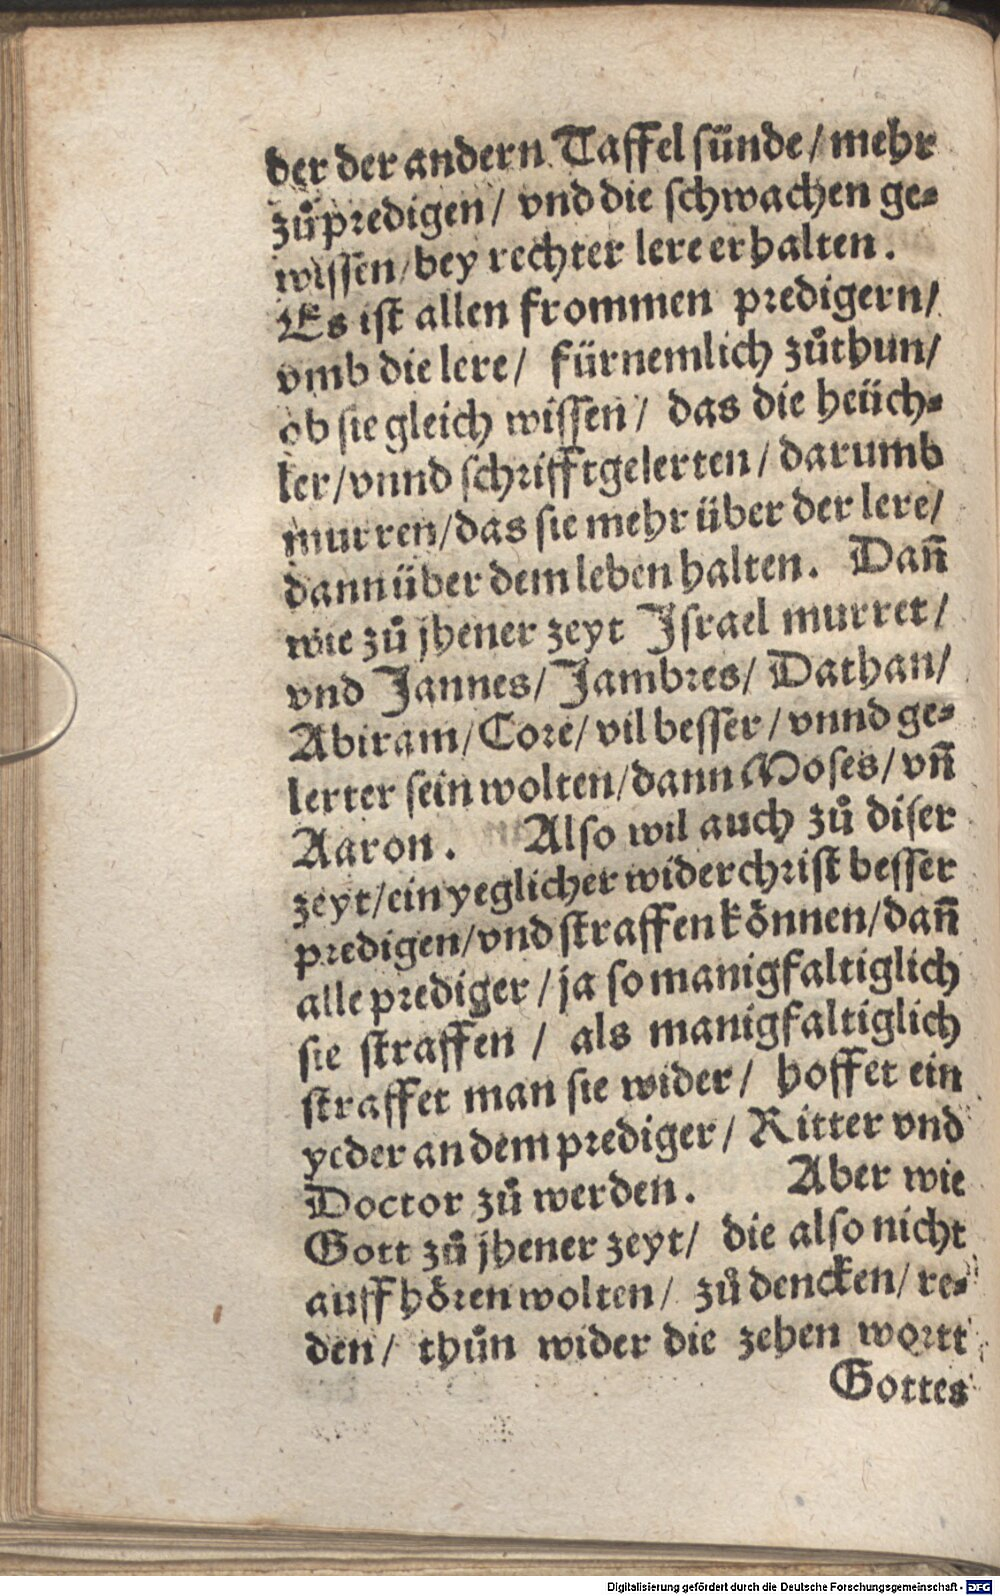 der der andern Taffel sünde / mehr
zů predigen / vnd die schwachen ge⸗
wissen / bey rechter lere erhalten.
Es ist allen frommen predigern /
vmb die lere / fürnemlich zůthun /
ob sie gleich wissen / das die heüch⸗
ler / vnnd schrifftgelerten / darumb
murren / das sie mehr über der lere /
dann über dem leben halten. Dañ
wie zů jhener zeyt Israel murret /
vnd Jannes / Jambres / Dathan /
Abiram / Core / vil besser / vnnd ge⸗
lerter sein wolten / dann Moses / vñ
Aaron. Also wil auch zů diser
zeyt / ein yeglicher widerchrist besser
predigen / vnd straffen können / dañ
alle prediger / ja so manigfaltiglich
sie straffen / als manigfaltiglich
straffet man sie wider / hoffet ein
yeder an dem prediger / Ritter vnd
Doctor zů werden. Aber wie
Gott zů jhener zeyt / die also nicht
auffhören wolten / zů dencken / re⸗
den / thůn wider die zehen wortt
Gottes
Digitalisierung gefördert durch die Deutsche Forschungsgemeinschaft - DFG